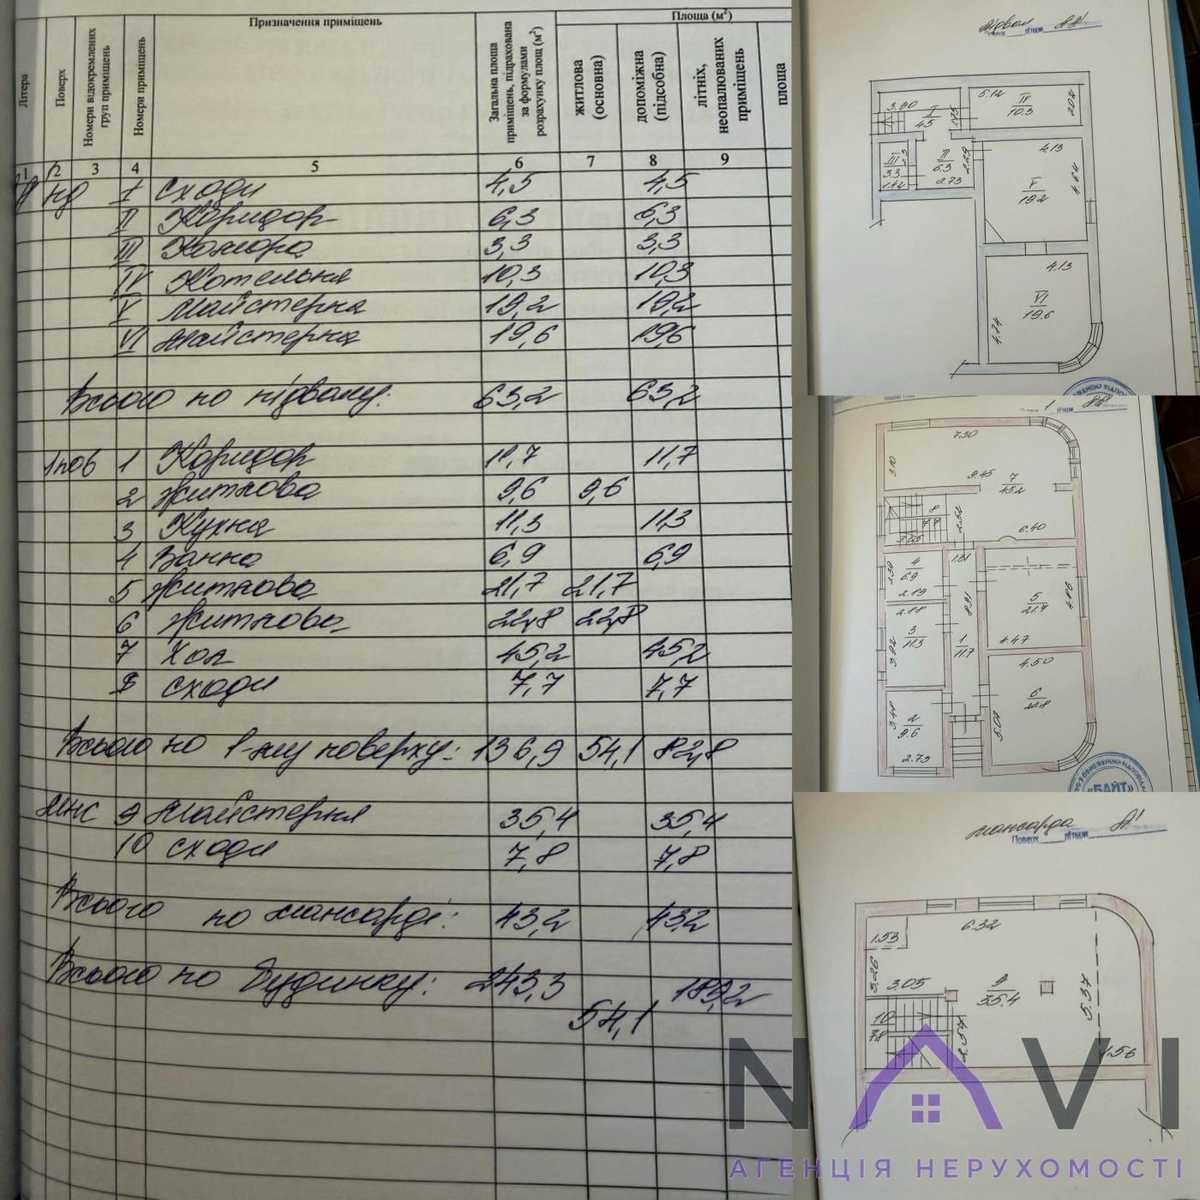 Літера
Поверх
Номери відокремлених груп приміщень
Номери приміщень
Призначення приміщень
Загальна площа приміщень, підрахована за формулами розрахунку площ (м²)
Площа (м²)
житлова (основна)
допоміжна (підсобна)
літніх, неопалюваних приміщень
площа
1 2 3 4 5 6 7 8 9
пд I Сходи 4,5 4,5
II Коридор 6,3 6,3
III Комора 3,3 3,3
IV Котельня 10,3 10,3
V Майстерня 19,2 19,2
VI Майстерня 19,6 19,6
Всього по підвалу: 63,2 63,2
1пов 1 Коридор 11,7 11,7
2 Житлова 9,6 9,6
3 Кухня 11,3 11,3
4 Ванна 6,9 6,9
5 Житлова 21,7 21,7
6 Житлова 22,8 22,8
7 Хол 45,2 45,2
8 Сходи 7,7 7,7
Всього по 1-му поверху: 136,9 54,1 82,8
мнс 9 Майстерня 35,4 35,4
10 Сходи 7,8 7,8
Всього по мансарді: 43,2 43,2
Всього по будинку: 243,3 189,2
54,1
підвал
3.90
I
4.5
5.12
IV
10.3
2.02
III
3.3
II
6.3
2.73
4.13
V
19.2
4.64
4.13
VI
19.6
4.74
1
7.90
3.10
9.45
7
45.2
8
7.7
6.40
4
6.9
2.19
1.31
8.91
5
21.7
4.47
3
11.3
1
11.7
4.50
6
22.8
2
9.6
2.73
«БАЙТ»
мансарда
Поверх літери
6.32
1.53
3.26
3.05
9
35.4
5.37
10
7.8
2.54
1.56
NAVI
АГЕНЦІЯ НЕРУХОМОСТІ